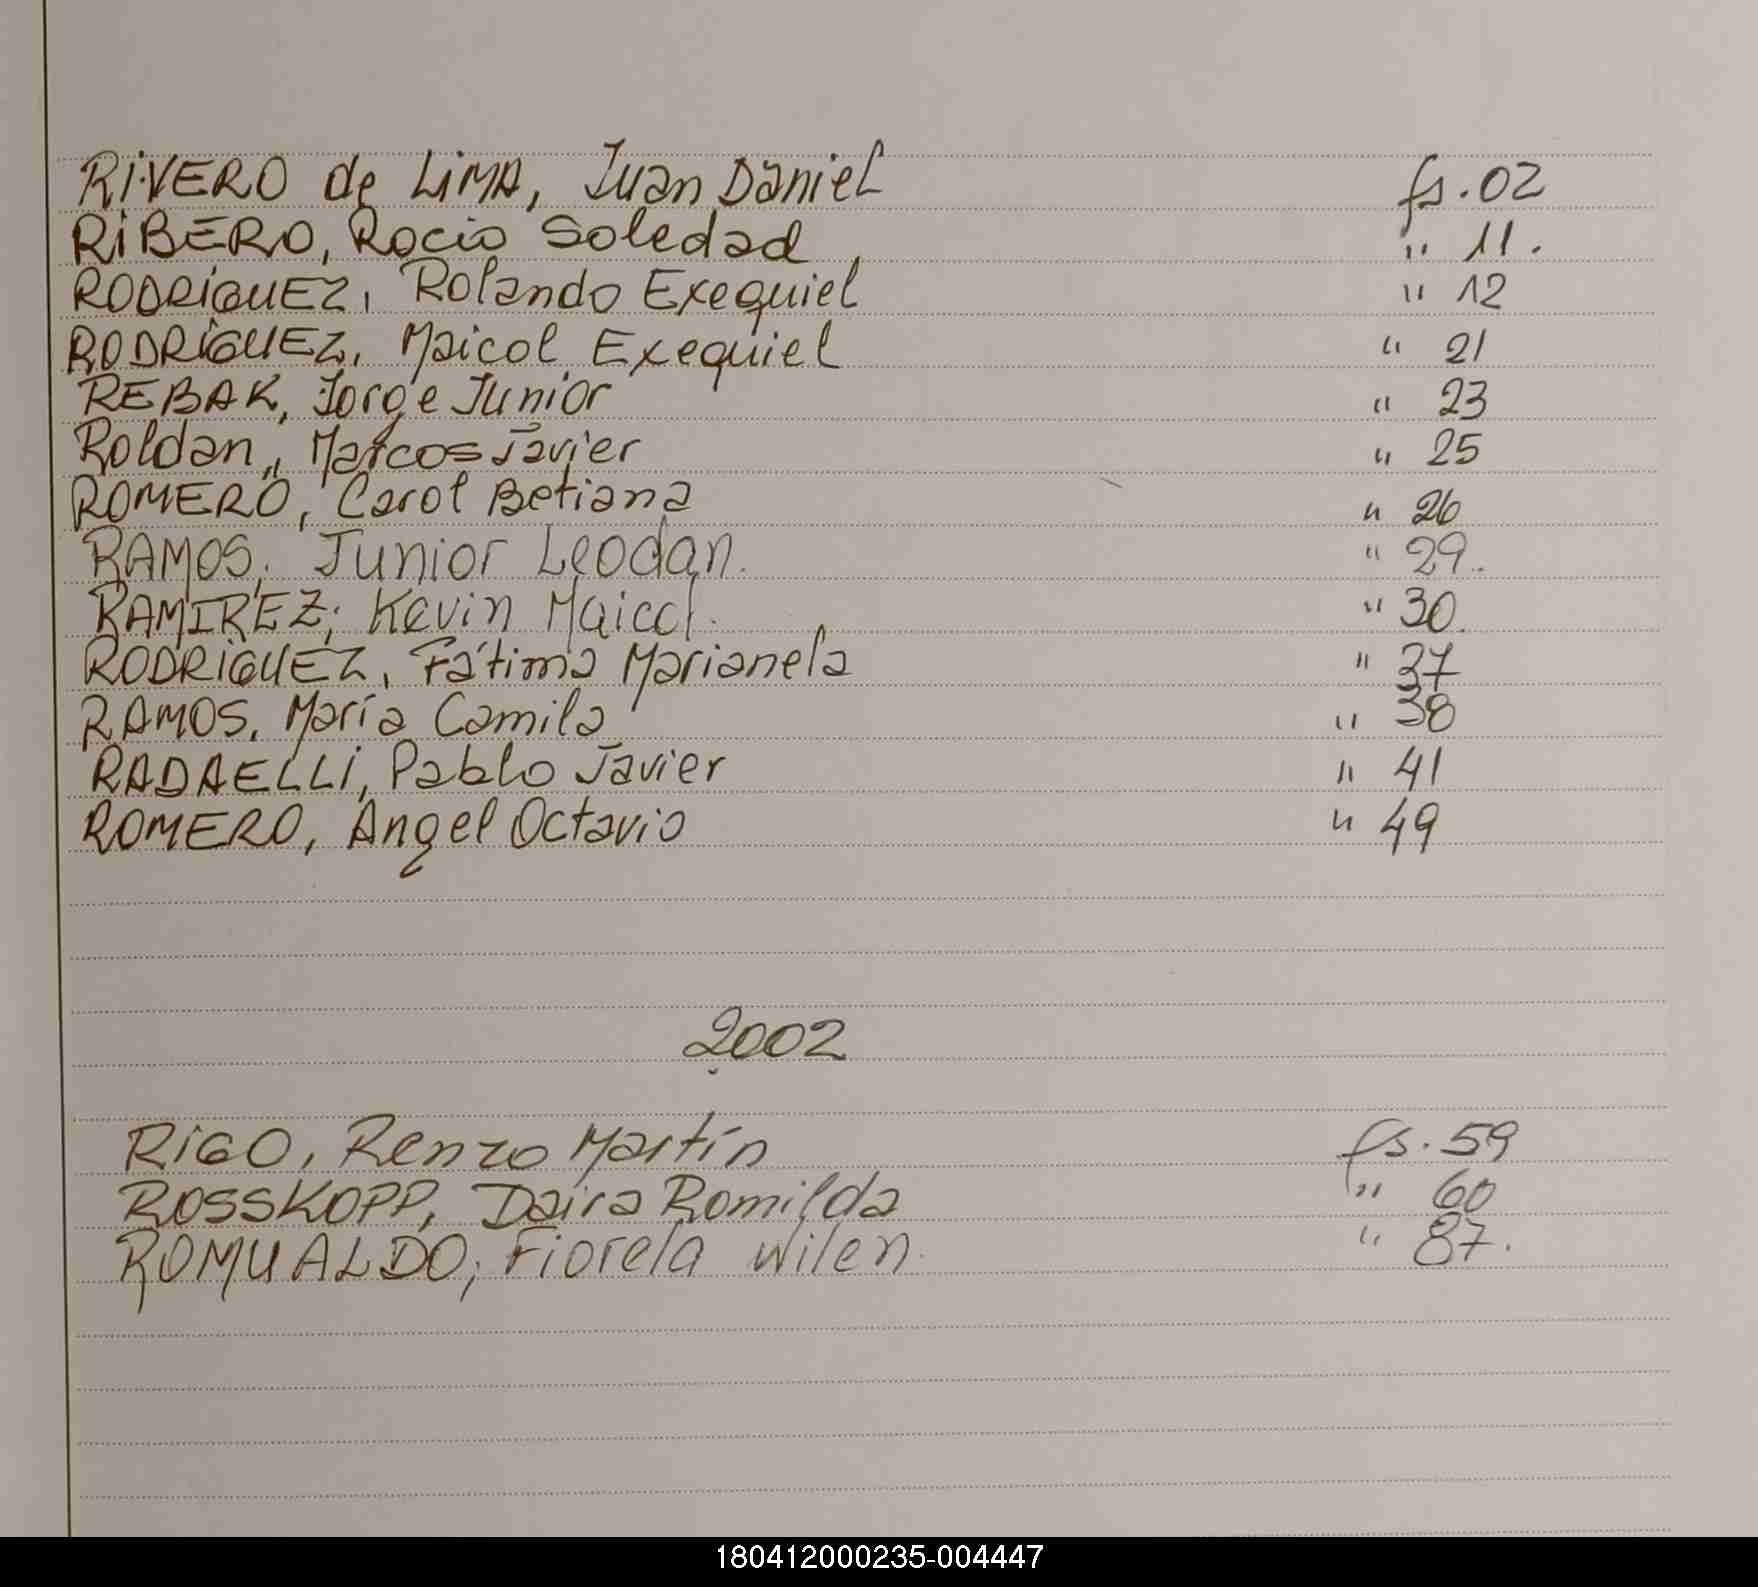 RIVERO de LIMA, Juan Daniel fs. 02
RIBERO, Rocio Soledad " 11.
RODRIGUEZ, Rolando Exequiel " 12
RODRIGUEZ, Maicol Exequiel " 21
REBAK, Jorge Junior " 23
Roldan, Marcos Javier " 25
ROMERO, Carol Betiana " 26
RAMOS, Junior Leodan. " 29.
RAMIREZ; Kevin Maicol. " 30.
RODRIGUEZ, Fátima Marianela " 37
RAMOS, María Camila " 38
RADAELLI, Pablo Javier " 41
ROMERO, Angel Octavio " 49
2002
RIGO, Renzo Martín fs. 59
ROSSKOPP, Daira Romilda " 60
ROMUALDO, Fiorela Wilen. " 87.
180412000235-004447